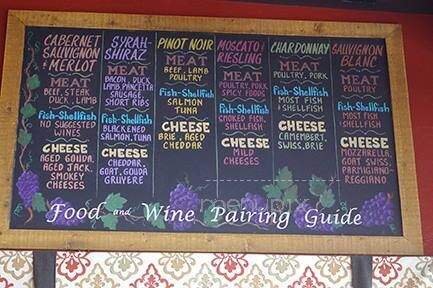 CABERNET
SAUVIGNON
& MERLOT
MEAT
BEEF, STEAK
DUCK, LAMB
Fish-Shellfish
NO SUGGESTED
WINES
CHEESE
AGED GOUDA,
AGED JACK,
SMOKEY
CHEESES
SYRAH-
SHIRAZ
MEAT
BACON, DUCK
LAMB, PANCETTA
SAUSAGE,
SHORT RIBS
Fish-Shellfish
BLACKENED
SALMON, TUNA
CHEESE
CHEDDAR,
GOAT, GOUDA
GRUYERE
PINOT NOIR
MEAT
BEEF, LAMB
POULTRY
Fish-Shellfish
SALMON
TUNA
CHEESE
BRIE, AGED
CHEDDAR
MOSCATO &
RIESLING
MEAT
POULTRY, PORK
SPICY FOODS
Fish-Shellfish
SMOKED FISH,
SHELLFISH
CHEESE
MILD
CHEESES
CHARDONNAY
MEAT
POULTRY, PORK
Fish-Shellfish
MOST FISH
SHELLFISH
CHEESE
CAMEMBERT,
SWISS, BRIE
SAUVIGNON
BLANC
MEAT
POULTRY
Fish-Shellfish
MOST FISH &
SHELLFISH
CHEESE
MOZZARELLA,
GOAT, SWISS,
PARMIGIANO-
REGGIANO
Food and Wine Pairing Guide
menupix